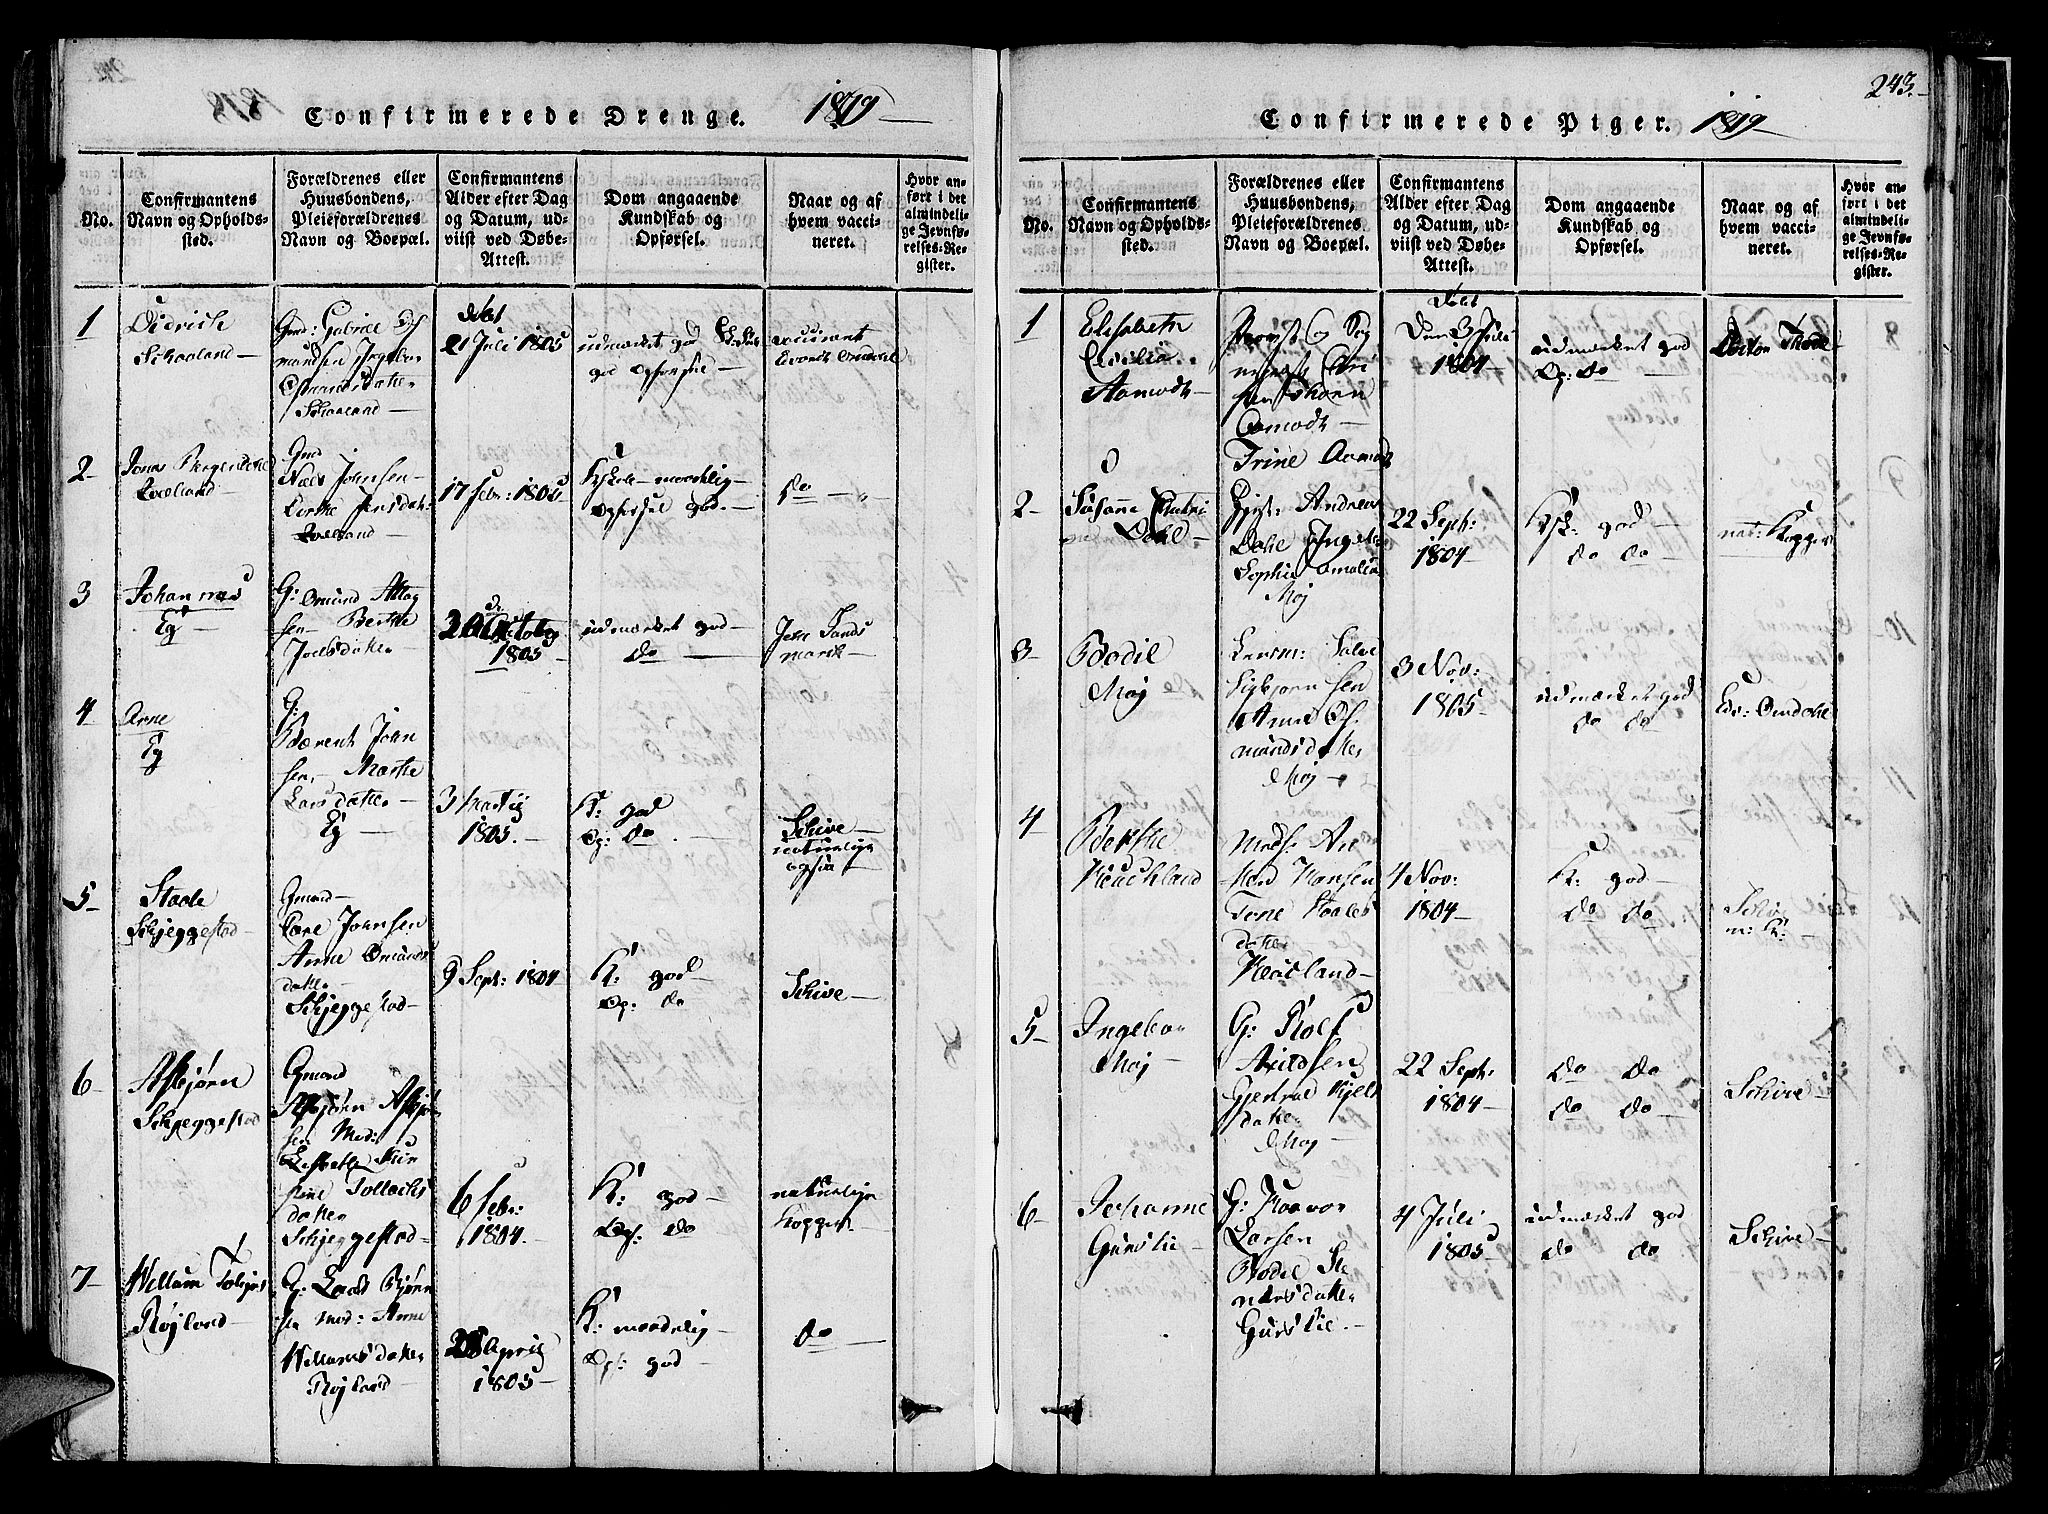 Confirmerede Drenge. 1819
No.
Confirmantens
Navn og Opholds-
sted.
Forældrenes eller
Huusbondens,
Pleieforældrenes
Navn og Boepæl.
Confirmantens
Alder efter Dag
og Datum, ud-
viist ved Døbe-
Attest.
Dom angaaende
Kundskab og
Opførsel.
Naar og af
hvem vacci-
neret.
Hvor an-
ført i det
almindeli-
ge Jevnfø-
relses-Re-
gister.
1
Didrich
Schaaland
Gmd: Gabriel Os
mundsen Ingebor
Osmundsdatter
Schaaland
døbt
21 Juli 1805
udmærket god
god Opførsel
vaccineret
Omdahl
2
Jonas
Gmd
Niels Johnsen
Jensdatter
17 Febr: 1805
maadelig
Opførsel god.
do
3
Johannes
Eg
G: Omund Attag
sen Berthe
Joelsdatter
October
1805
udmærket god
do
Jens Sands
mark
4
Arne
Eg
G:
Bærent John
sen, Marthe
Larsdatter
Eg
3 Martij
1805.
K: god
Op: do.
Schive
naturlige
5
Staale
Schjeggestad
Gmand
Johnsen
Anne Omunds
datter
Schjeggestad
9 Sept: 1804
K: god
Op: do
Schive
6
Asbjørn
Schjeggestad
Gmand
Asbjørn Asbjør
sen Mod:
Tollachs
datter
Schjeggestad
6 Febr:
1804.
K: god
Opf: do
naturlige
Kopper
7
Willum
Røjland
G: Lars Bjørn
sen Mod: Anne
Willumsdatter
Røjland
28 April
1805
K: maadelig
Opf: god
do
243.
Confirmerede Piger. 1819
No.
Confirmantens
Navn og Opholds-
sted.
Forældrenes eller
Huusbondens,
Pleieforældrenes
Navn og Boepæl.
Confirmantens
Alder efter Dag
og Datum, ud-
viist ved Døbe-
Attest.
Dom angaaende
Kundskab og
Opførsel.
Naar og af
hvem vacci-
neret.
Hvor an-
ført i det
almindeli-
ge Jevnfø-
relses-Re-
gister.
1
Elisabeth
Cecilia
Aamodt
Provst og Sog
nepræst
Aamodt
Trine Aamodt
Døbt
Den 3 Juli
1804
udmærket god
Op: do
2
Susanne
Dahl
Andreas
Dahl Inger
Sophie Amalia
Moj
22 Sept:
1804
Ksk: god
do do
nat: Kopper
3
Bodil
Moj
Lensm: Salve
Sigbjørnsen
Anne Os-
mundsdatter
Moj
3 Nov:
1805
udmærket god
do do
Edv: Omdahl
4
Berthe
Heuchland
Hansen
Tone Staales
datter
4 Nov:
1804
K: god
do do
Schive
5
Ingebor
Moj
G: Rolf
Axildsen
Gjertrud Kjels
datter
Moj
22 Sept:
1804
do do
do do
Schive
6
Johanne
Gurslie
G: Haavor
Larsen
Bodil Ste
nersdatter
Gurslie.
4 Juli
1805
udmærket god
do do
Schive